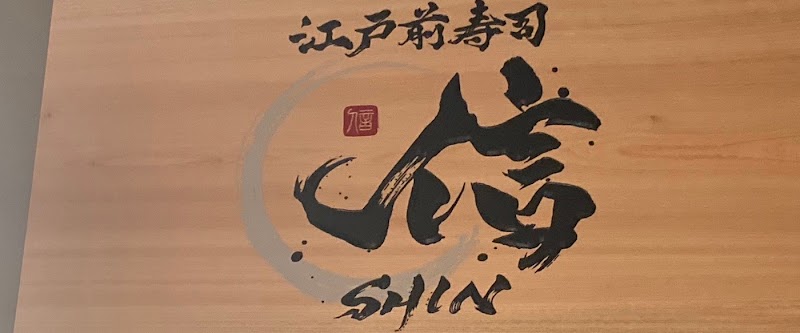 江戸前寿司
信
信
SHIN